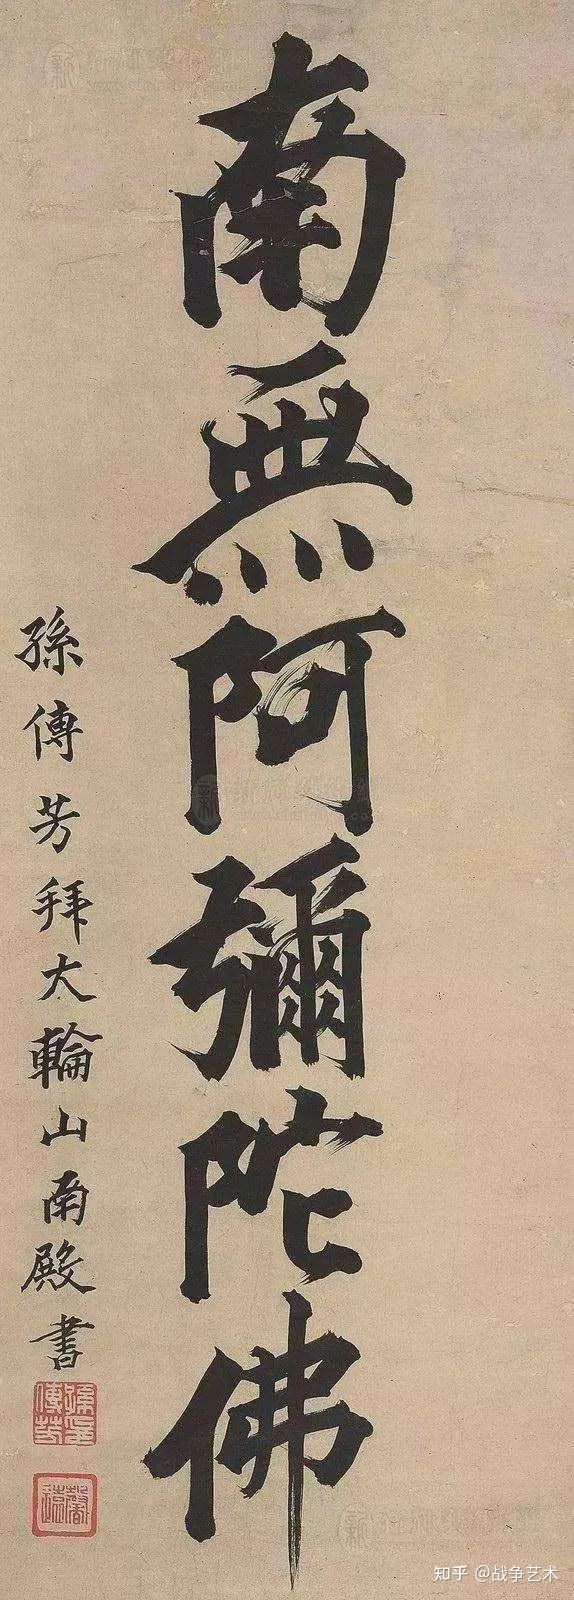 南無阿彌陀佛
孫傳芳拜大輪山南殿書
孫傳芳印
馨遠
知乎 @战争艺术